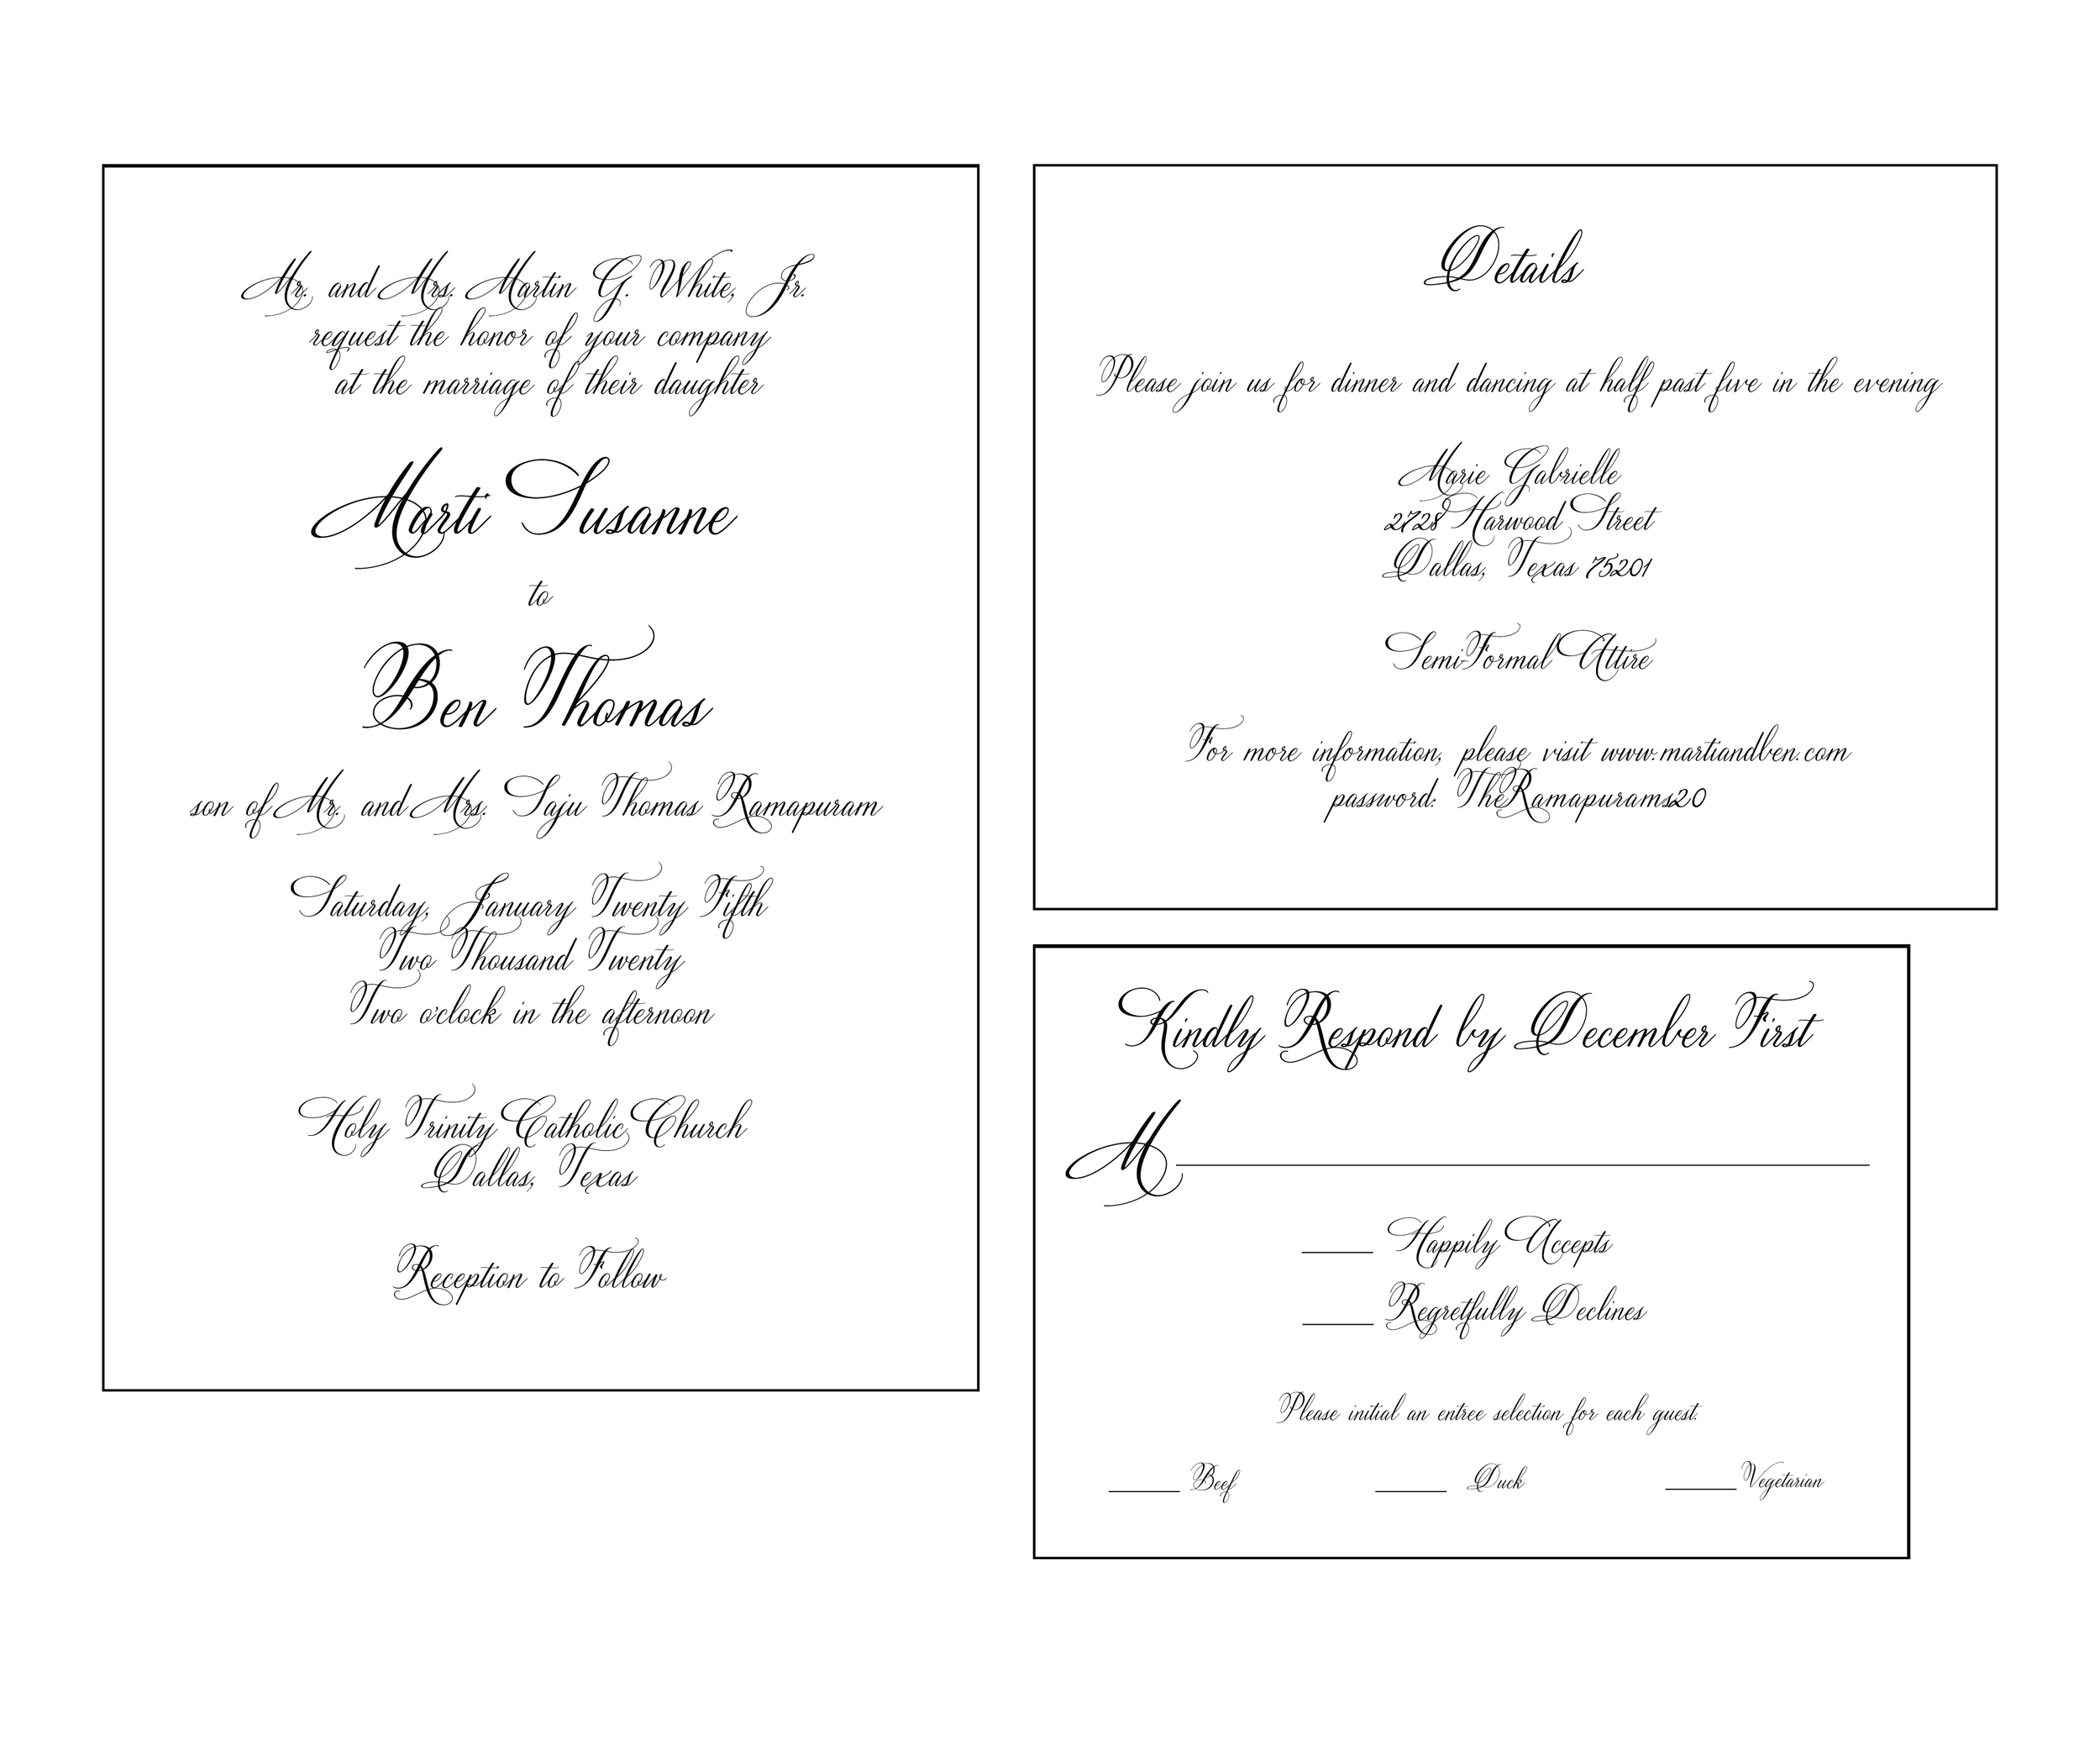 Mr. and Mrs. Martin G. White, Jr.
request the honor of your company
at the marriage of their daughter
Marti Susanne
to
Ben Thomas
son of Mr. and Mrs. Saju Thomas Ramapuram
Saturday, January Twenty Fifth
Two Thousand Twenty
Two o'clock in the afternoon
Holy Trinity Catholic Church
Dallas, Texas
Reception to Follow
Details
Please join us for dinner and dancing at half past five in the evening
Marie Gabrielle
2728 Harwood Street
Dallas, Texas 75201
Semi-Formal Attire
For more information, please visit www.martiandben.com
password: TheRamapurams20
Kindly Respond by December First
M
Happily Accepts
Regretfully Declines
Please initial an entree selection for each guest.
Beef Duck Vegetarian